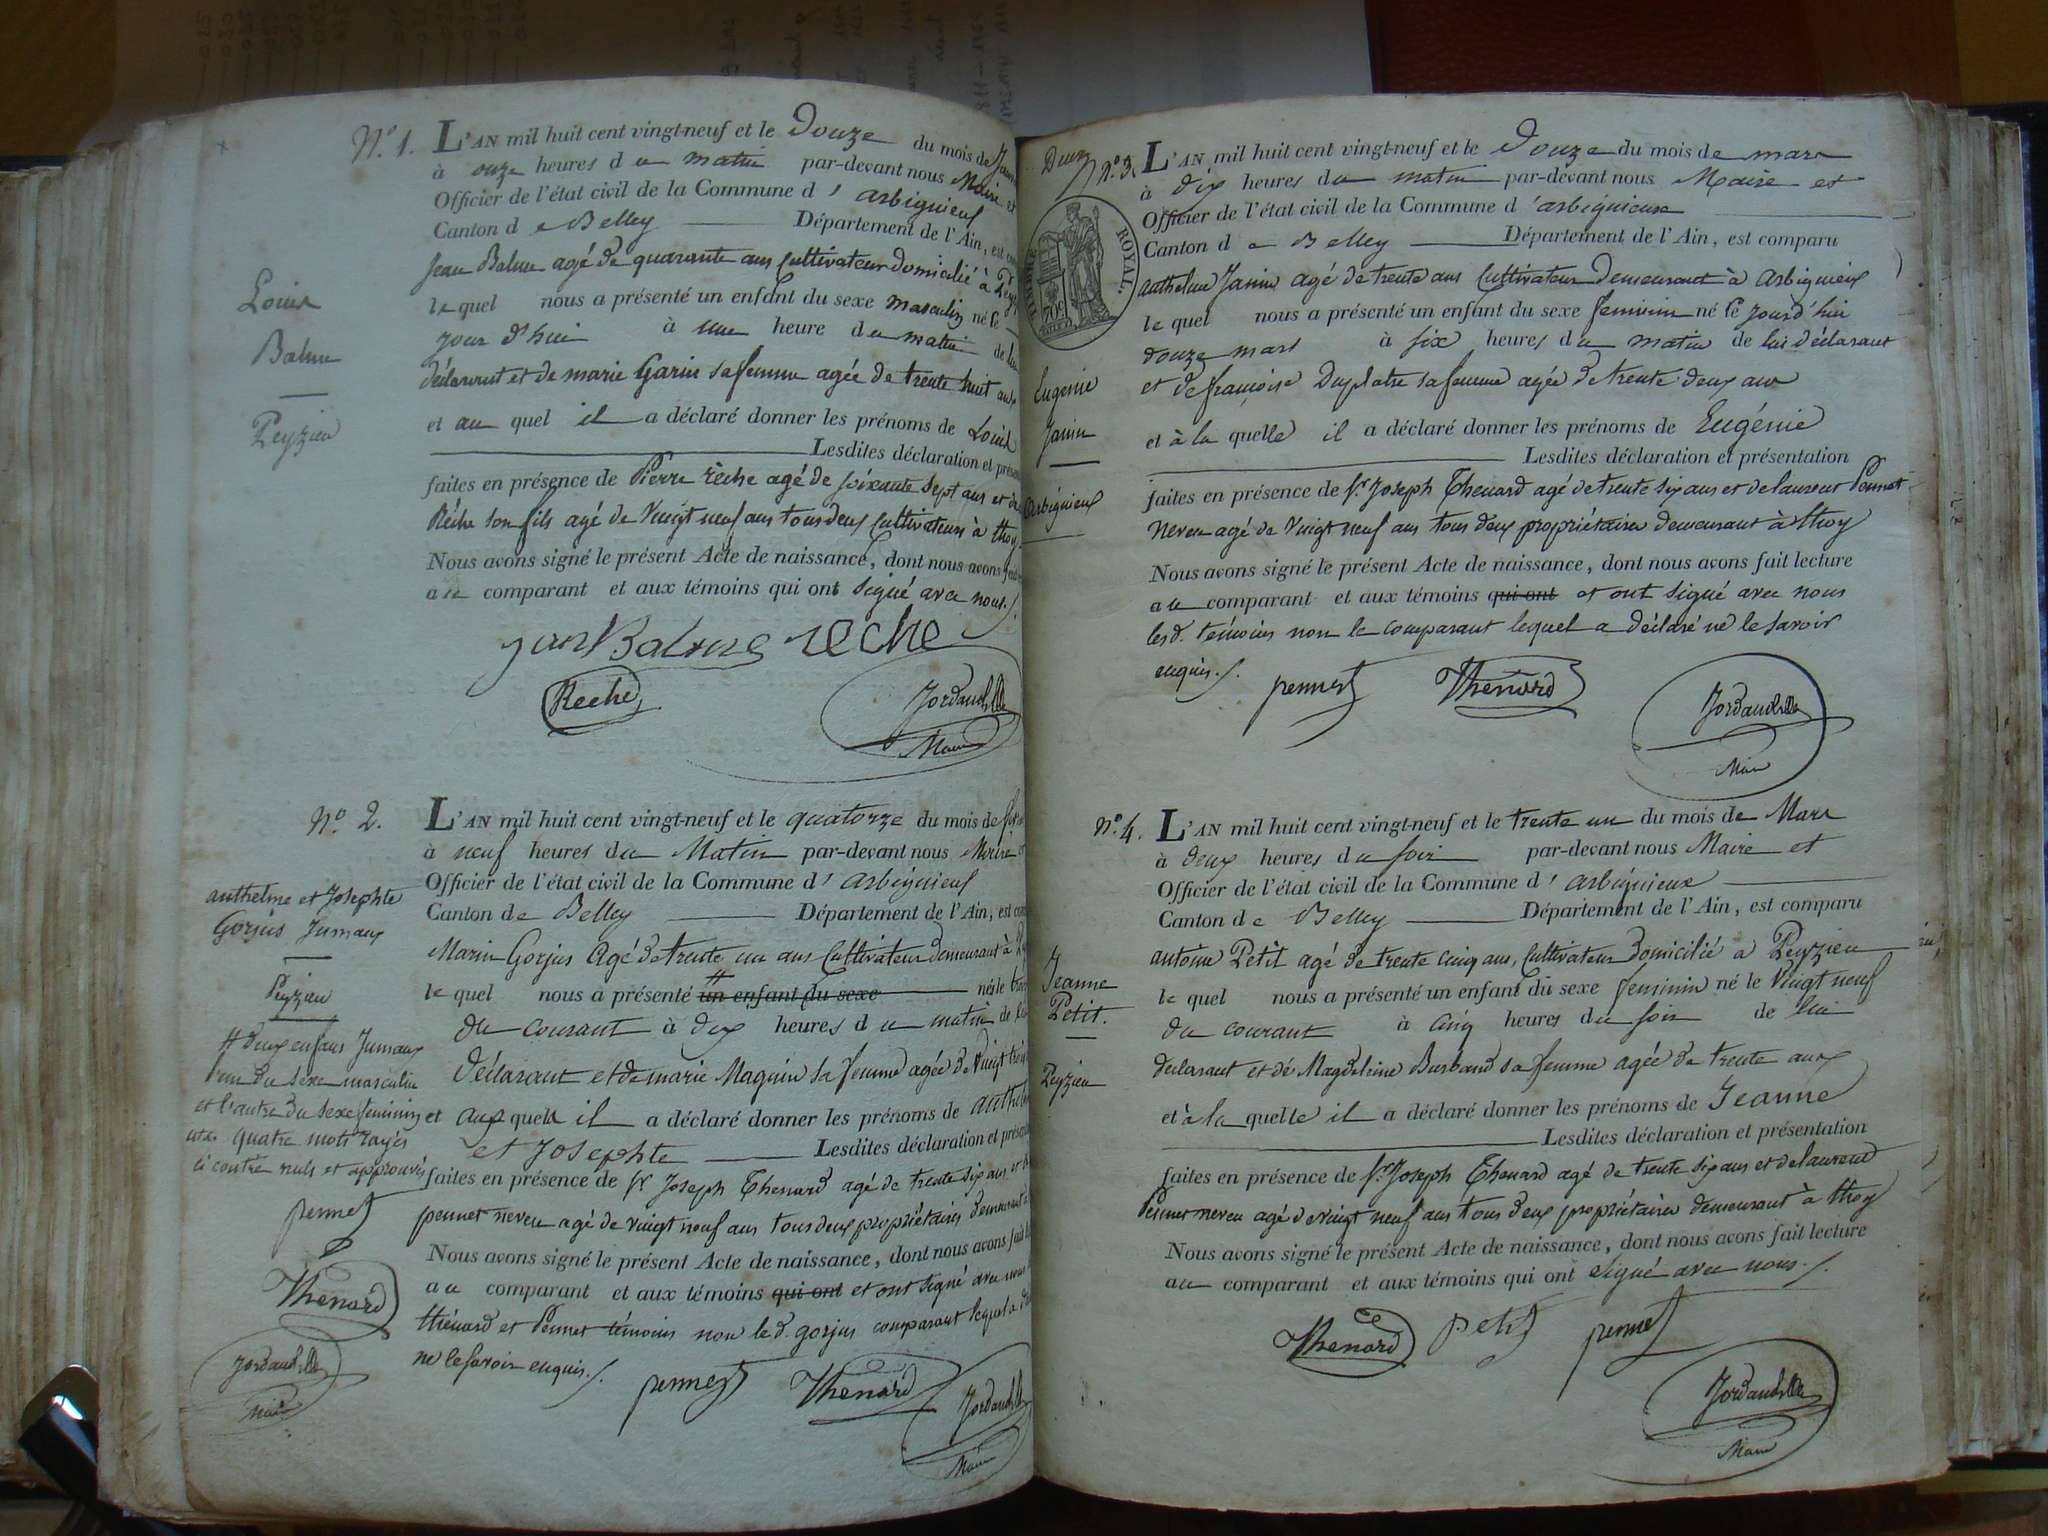 N.° 1. L'AN mil huit cent vingt-neuf et le Douze du mois de
à onze heures du matin par-devant nous Maire et
Officier de l'état civil de la Commune d'arbignieux
Canton de Belley Département de l'Ain, est
Jean Balme agé de quarante ans Cultivateur domicilié à
lequel nous a présenté un enfant du sexe masculin né le
jour d'hui à une heure du matin de lui
déclarant et de marie Garin sa femme agée de trente huit ans
et au quel il a déclaré donner les prénoms de Louis
Lesdites déclaration et
faites en présence de Pierre rèche agé de soixante sept ans et de
Rèche son fils agé de Vingt neuf ans tous deux Cultivateurs à thoy
Nous avons signé le présent Acte de naissance, dont nous avons
au comparant et aux témoins qui ont signé avec nous ./.
Louis
Balme
Peyzieu
jean Balme reche
Reche Jordan
Maire
N.° 2. L'AN mil huit cent vingt-neuf et le quatorze du mois de
à neuf heures du Matin par-devant nous Maire et
Officier de l'état civil de la Commune d'arbignieux
Canton de Belley Département de l'Ain, est
Marin Gorjus Agé de trente un ans Cultivateur demeurant à
lequel nous a présenté un enfant du sexe nés le
du courant à dix heures du matin de
déclarant et de marie Magnin sa femme agée de Vingt trois
et aux quels il a déclaré donner les prénoms de
et Josephte Lesdites déclaration et
faites en présence de Sr. Joseph Thenard agé de trente six ans et
pennet neveu agé de vingt neuf ans tous deux propriétaires demeurant
Nous avons signé le présent Acte de naissance, dont nous avons
au comparant et aux témoins qui ont et ont signé avec nous
thénard et Pennet témoins non le d. gorjus comparant lequel a
ne le savoir enquis ./.
anthelme et Josephte
Gorjus Jumaux
Peyzieu
# deux enfans Jumaux
l'un du sexe masculin
et l'autre du sexe feminin
quatre mots rayés
ci contre nuls et approuvés
pennet
Thenard
Jordan
Maire
pennet Thenard Jordan
Maire
Deux
N.° 3. L'AN mil huit cent vingt-neuf et le Douze du mois de mars
à dix heures du matin par-devant nous Maire et
Officier de l'état civil de la Commune d'arbignieux
Canton de Belley Département de l'Ain, est comparu
anthelme Janin agé de trente ans Cultivateur Demeurant à Arbignieux
lequel nous a présenté un enfant du sexe feminin né le jourd'hui
douze mars à six heures du matin de lui déclarant
et de françoise Duplatre sa femme agée de trente deux ans
et à la quelle il a déclaré donner les prénoms de Eugénie
Lesdites déclaration et présentation
faites en présence de Sr. Joseph Thenard agé de trente six ans et de laurent Pennet
neveu agé de Vingt neuf ans tous deux propriétaires demeurant à thoy
Nous avons signé le présent Acte de naissance, dont nous avons fait lecture
au comparant et aux témoins qui ont et ont signé avec nous
les d. témoins non le comparant lequel a déclaré ne le savoir
enquis ./.
ROYAL.
70c
Eugénie
Janin
Arbignieux
pennet Thenard Jordan
Maire
N.° 4. L'AN mil huit cent vingt-neuf et le trente un du mois de Mars
à deux heures du soir par-devant nous Maire et
Officier de l'état civil de la Commune d'arbignieux
Canton de Belley Département de l'Ain, est comparu
antoine Petit agé de trente cinq ans, Cultivateur Domicilié a Peyzieu
lequel nous a présenté un enfant du sexe feminin né le Vingt neuf
du courant à cinq heures du soir de lui
declarant et de Magdeleine Burband sa femme agée de trente ans
et à la quelle il a déclaré donner les prénoms de Jeanne
Lesdites déclaration et présentation
faites en présence de Sr. Joseph Thenard agé de trente six ans et de laurent
Pennet neveu agé de vingt neuf ans tous deux propriétaires demeurant à thoy
Nous avons signé le présent Acte de naissance, dont nous avons fait lecture
au comparant et aux témoins qui ont signé avec nous ./.
Jeanne
Petit.
Peyzieu
Thenard petit pennet
Jordan
Maire